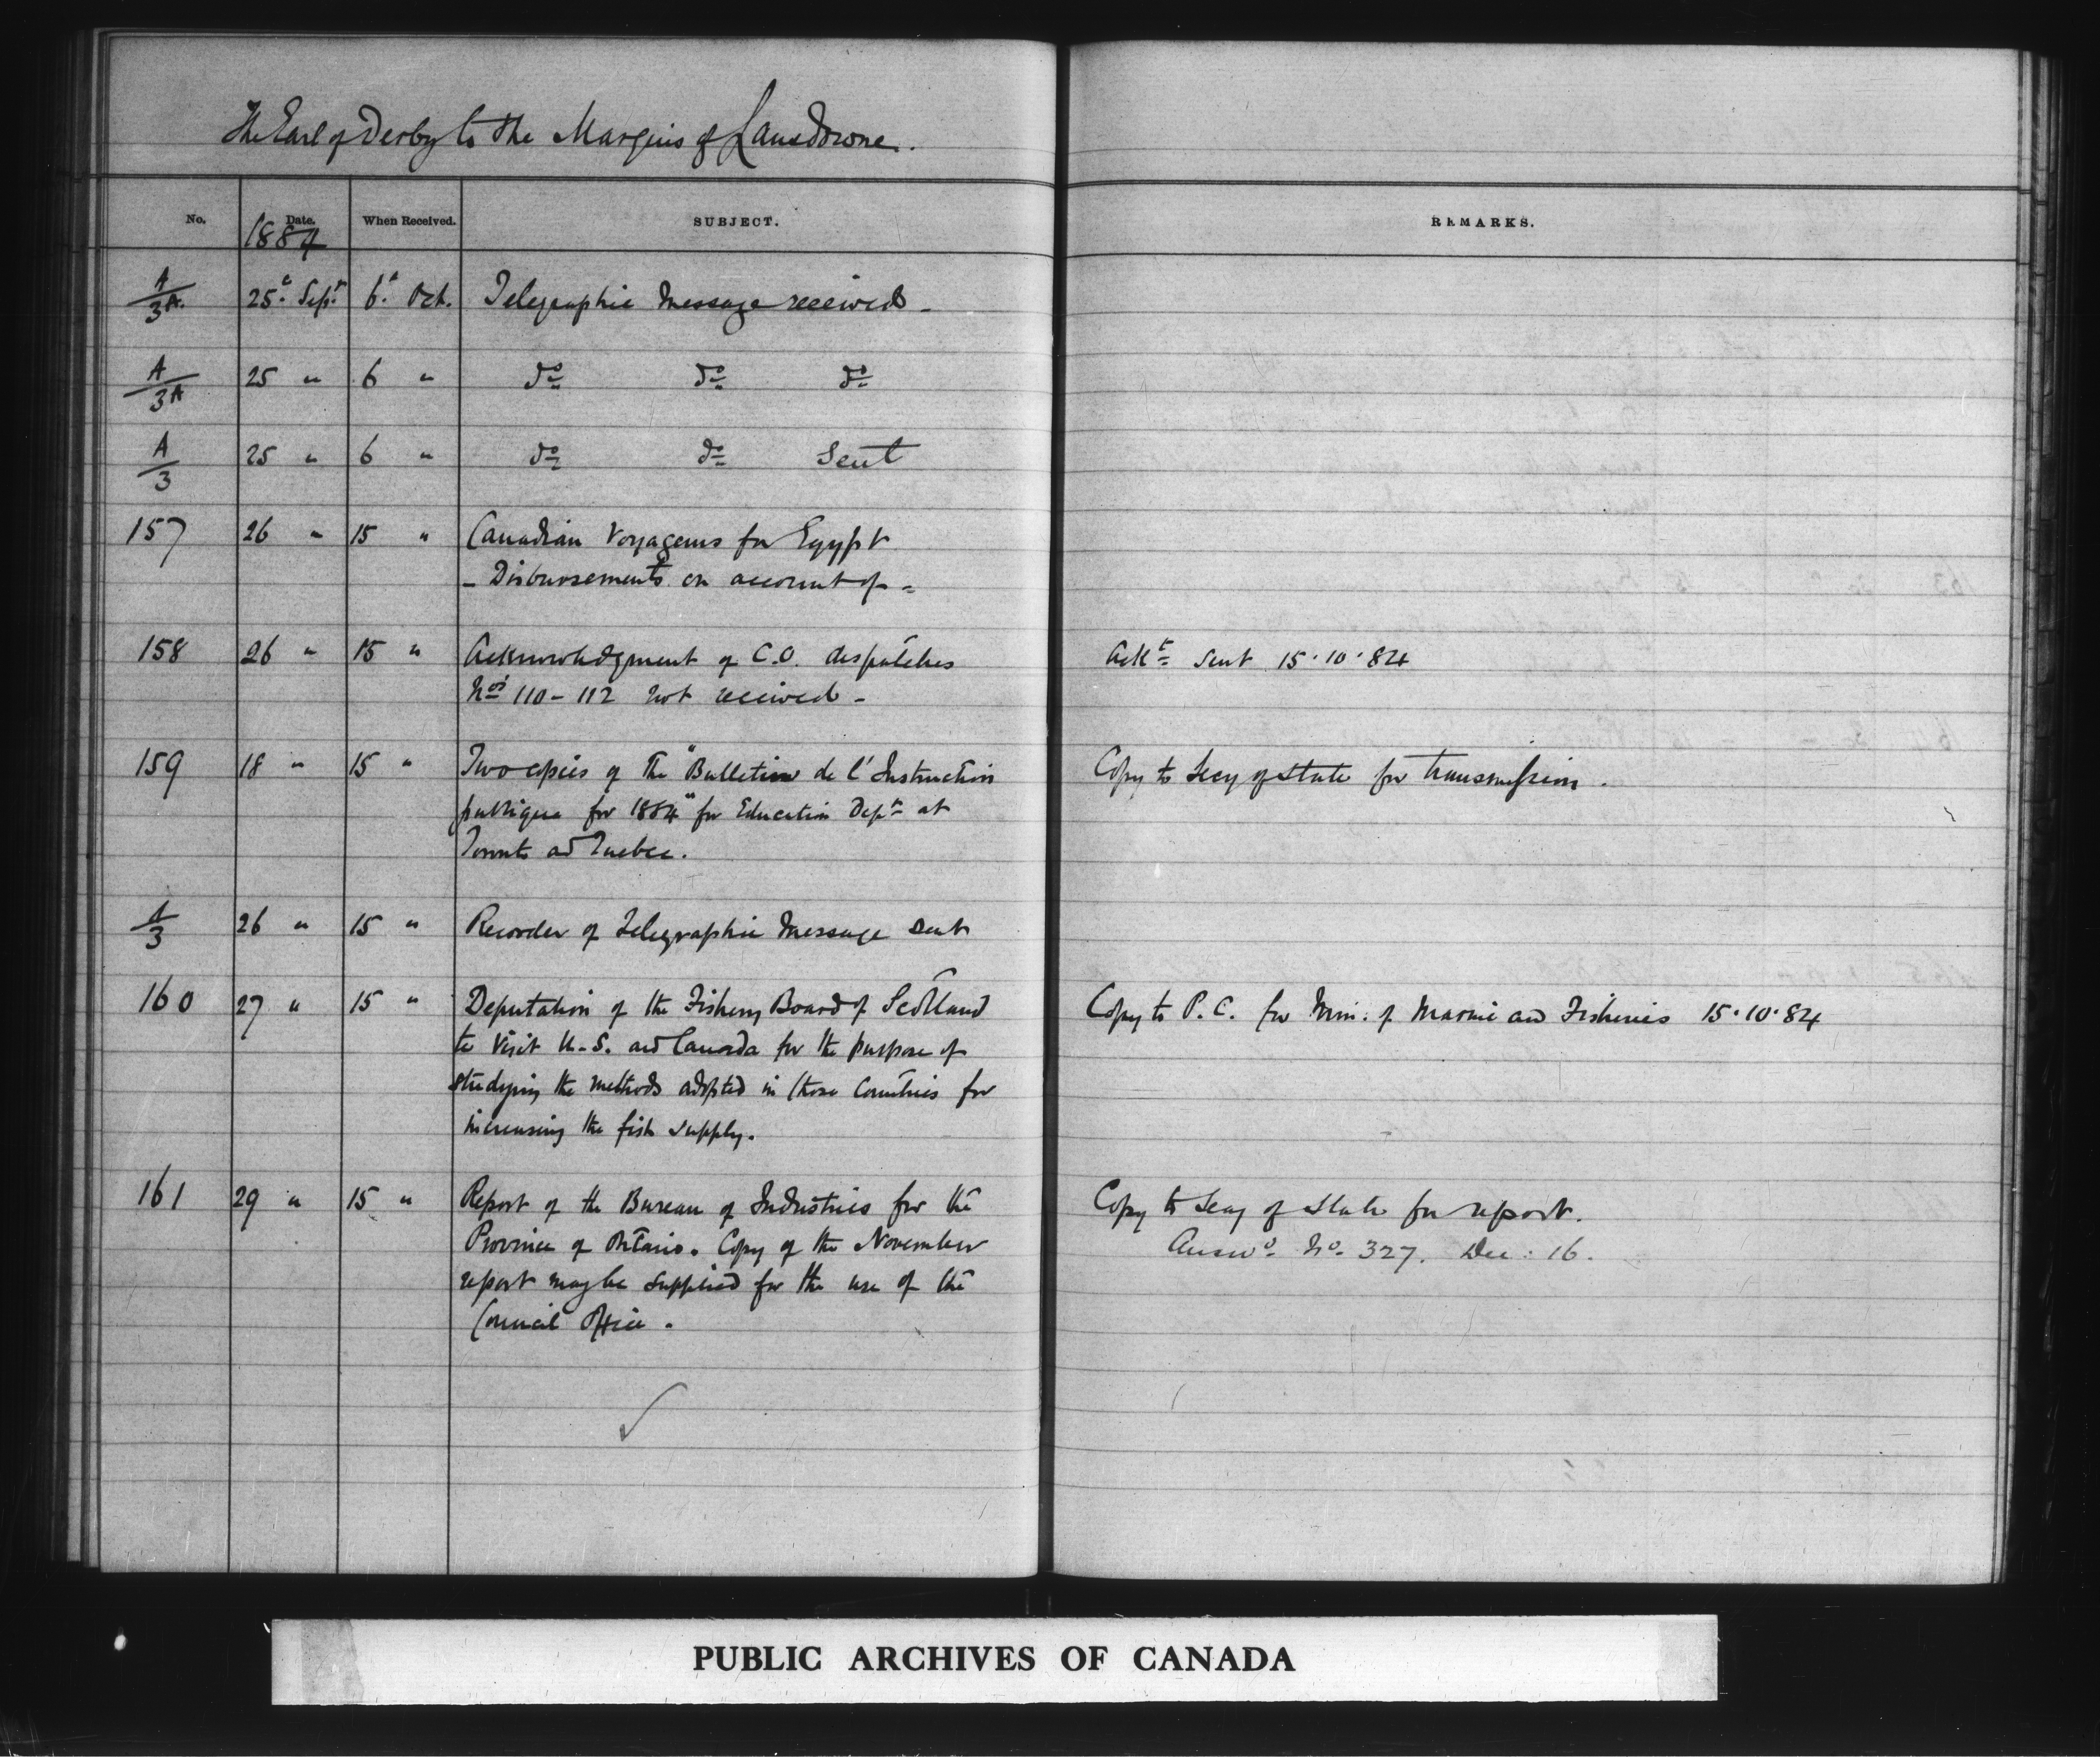 The Earl of Derby to the Marquis of Lansdowne.
No. Date. When Received. SUBJECT. REMARKS.
1884
A/3A. 25th Sept. 6th Oct. Telegraphic Message received -
A/3A 25 " 6 " do do do
A/3 25 " 6 " do do Sent
157 26 " 15 " Canadian Voyageurs for Egypt
- Disbursements on account of -
158 26 " 15 " Acknowledgment of C.O. dispatches Ackt sent 15.10.84
Nos 110 - 112 not received -
159 18 " 15 " Two copies of the "Bulletin de l'Instruction Copy to Secy of State for transmission.
publique for 1884" for Education Dept at
Toronto and Quebec.
A/3 26 " 15 " Recorder of Telegraphic Message sent
160 27 " 15 " Deputation of the Fishery Board of Scotland Copy to P.C. for Min. of Marine and Fisheries 15.10.84
to visit U.S. and Canada for the purpose of
studying the methods adopted in those Countries for
increasing the fish supply.
161 29 " 15 " Report of the Bureau of Industries for the Copy to Secy of State for report.
Province of Ontario. Copy of the November Answd No. 327. Dec: 16.
report may be supplied for the use of the
Council Office.
PUBLIC ARCHIVES OF CANADA